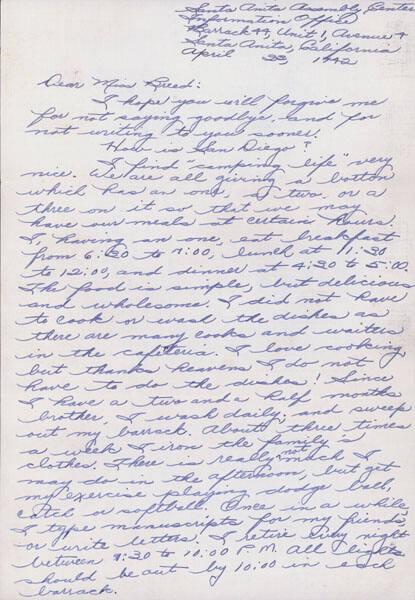 Santa Anita Assembly Center
Information Office
Barrack 44, Unit 1, Avenue 4
Santa Anita, California
April 1942
Dear Miss Breed:
I hope you will forgive me
for not saying goodbye and for
not writing to you sooner.
How is San Diego?
I find "camping life" very
nice. We are all giving a botton
which has an one, a two, or a
three on it so that we may
have our meals at certain hours.
I, having an one, eat breakfast
from 6:30 to 7:00, lunch at 11:30
to 12:00, and dinner at 4:30 to 5:00.
The food is simple, but delicious
and wholesome. I did not have
to cook or wash the dishes as
there are many cooks and waiters
in the cafeteria. I love cooking,
but thanks heavens I do not
have to do the dishes! Since
I have a two and a half months
brother, I wash daily; and sweep
out my barrack. About three times
a week I iron the family's
clothes. There is really not much I
may do in the afternoon, but get
my exercise playing dodge ball,
catch or softball. Once in a while,
I type manuscripts for my friends,
or write letters. I retire every night
between 9:30 to 10:00 P.M. All lights
should be out by 10:00 in each
barrack.